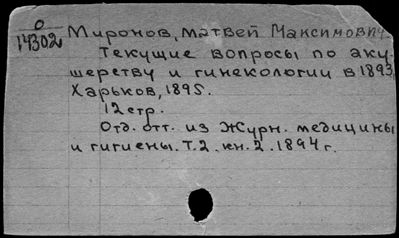 О
14302
Миронов, Матвей Максимович.
Текущие вопросы по аку-
шерству и гинекологии в 1893.
Харьков, 1895.
12 стр.
Отд. отт. из Журн. медицины
и гигиены. Т.2. кн. 2. 1894 г.